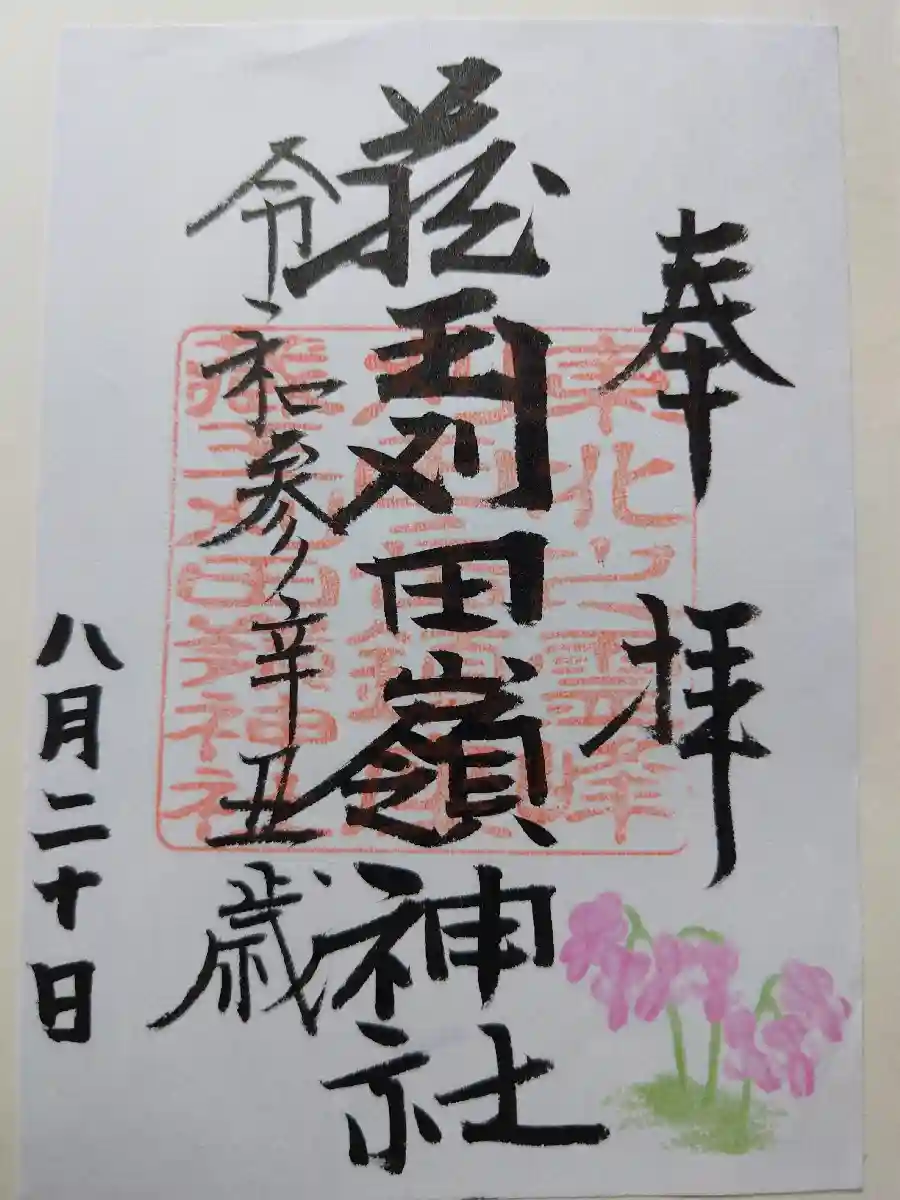 奉拝
蔵王刈田嶺神社
令和参辛丑歳
八月二十日
東北之霊峰
蔵王刈田嶺神社